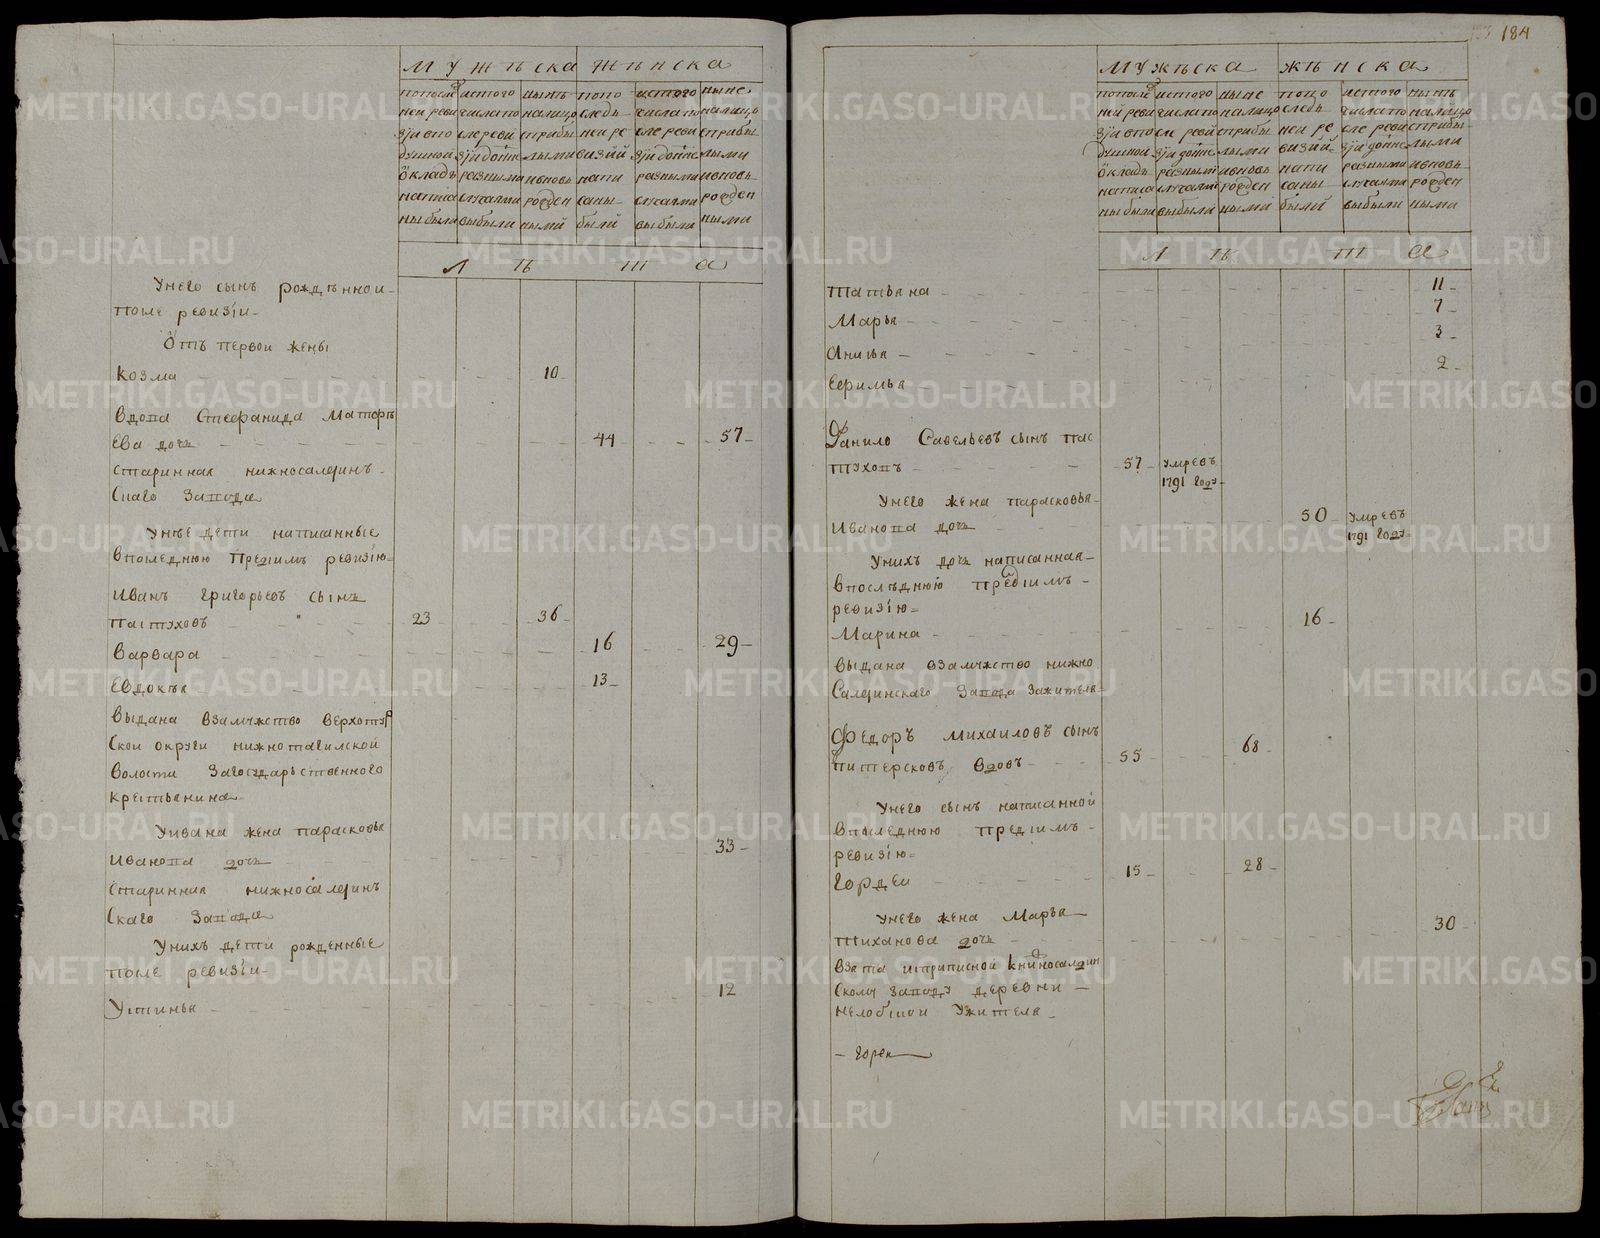 мужеска женска
по последней ревизiи в подушной окладъ написаны были
ис того числа после ревизiи до ныне разными случаями выбыли
ныне налицо с прибылыми и вновь рожденными
по последней ревизiи написаны были
ис того числа после ревизiи до ныне разными случаями выбыли
ныне налицо с прибылыми и вновь рожденными
лѣта
Унего сынъ рожденной
после ревизiи
Отъ первой жены
Козма 10
вдова Стефанида Матфе
ева дочь 44 57
старинная нижносалдинъ
скаго завода
Унее дети написанные
впоследнюю пред симъ ревизiю
Иванъ Григорьевъ сынъ
пастуховъ 23 36
варвара 16 29
Евдокѣя 13
выдана взамужство верхотур
ской округи нижнотагилской
волости загосударственного
крестьянина
Уивана жена парасковья
Иванова дочь 33
старинная нижносалдинъ
скаго завода
Унихъ дети рожденные
после ревизiи
Устинья 12
184
мужеска женска
по последней ревизiи в подушной окладъ написаны были
ис того числа после ревизiи до ныне разными случаями выбыли
ныне налицо с прибылыми и вновь рожденными
по последней ревизiи написаны были
ис того числа после ревизiи до ныне разными случаями выбыли
ныне налицо с прибылыми и вновь рожденными
лѣта
татьяна 11
Марья 7
Анисья 3
Ефимья 2
Данило Савельевъ сынъ пас
туховъ 57 умре въ 1791 году
Унего жена парасковья
Иванова дочь 50 умре въ 1791 году
Унихъ дочь написанная
впослѣднюю пред симъ
ревизiю
Марина 16
выдана взамужство нижно
Салдинскаго завода зажителя
Федоръ михаиловъ сынъ
питерсковъ вдовъ 55 68
Унего сынъ написанной
впоследнюю пред симъ
ревизiю
Гордеи 15 28
Унего жена Марья
тиханова дочь 30
взята исприписной книжносалдин
скому заводу деревни
нелобской Ужителя